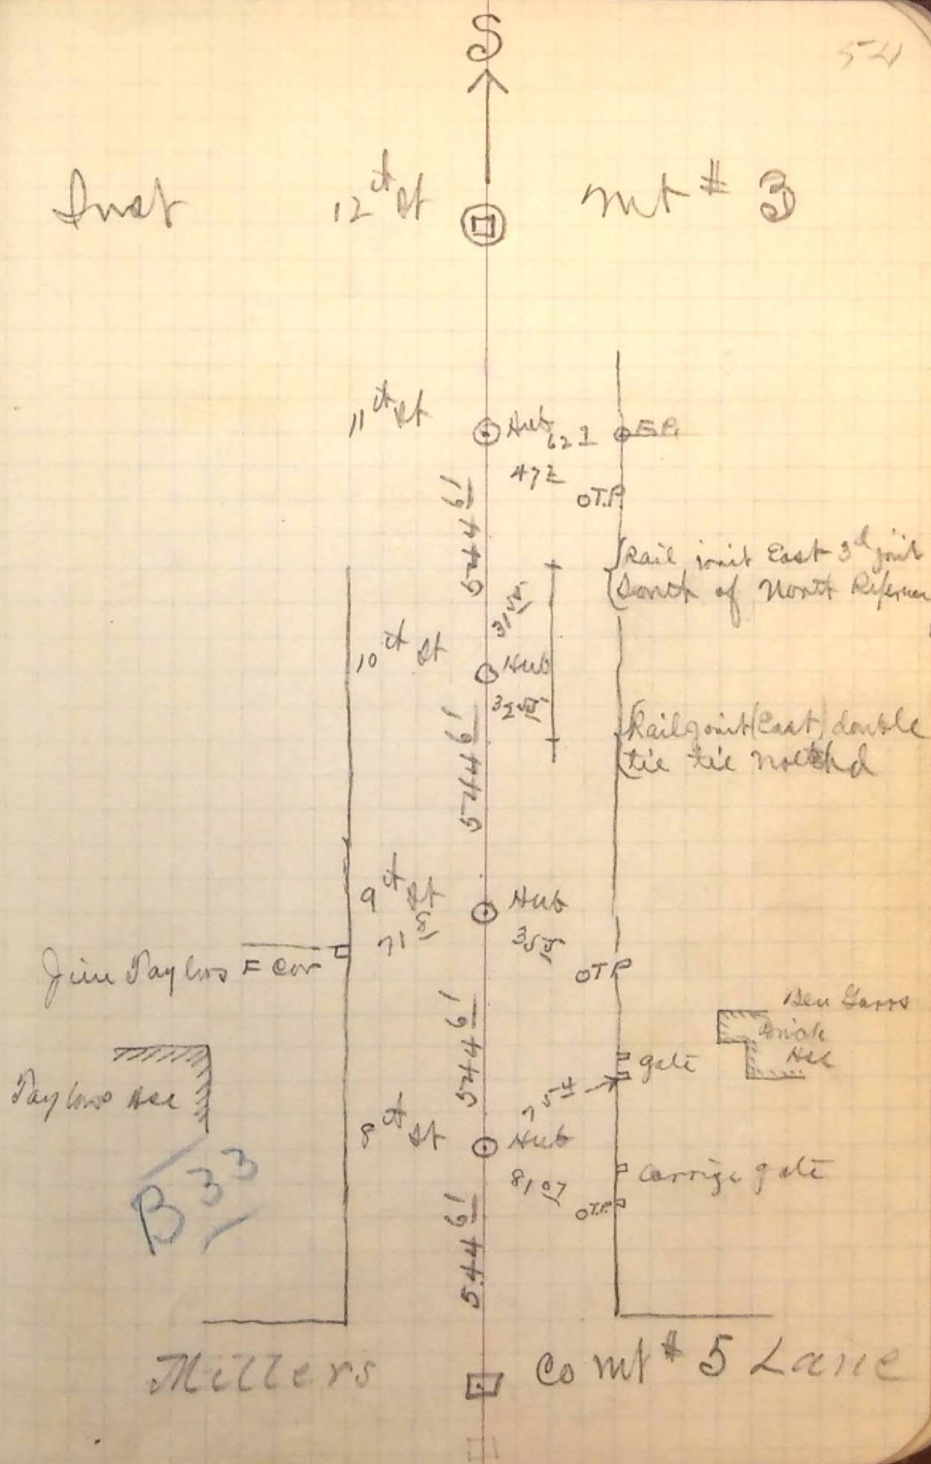 S
54
Inst 12th St Mt # 3
11th St Hub 62 1 E.P.
47 2
O T.P.
544 61
Rail joint East 3d joint
South of North Referenc
31 55
10th St Hub
32 55
Rail joint (East) double
tie tie notchd
544 61
9th St Hub
71 81 35 5
Jim Taylors F Cor O T P
Ben Garrs
Brick
Hse
544 61 gate
Taylors Hse
7 54
8th St Hub
81 07 Carrige gate
O T.P.
B 33
544 61
Millers Co Mt # 5 Lane